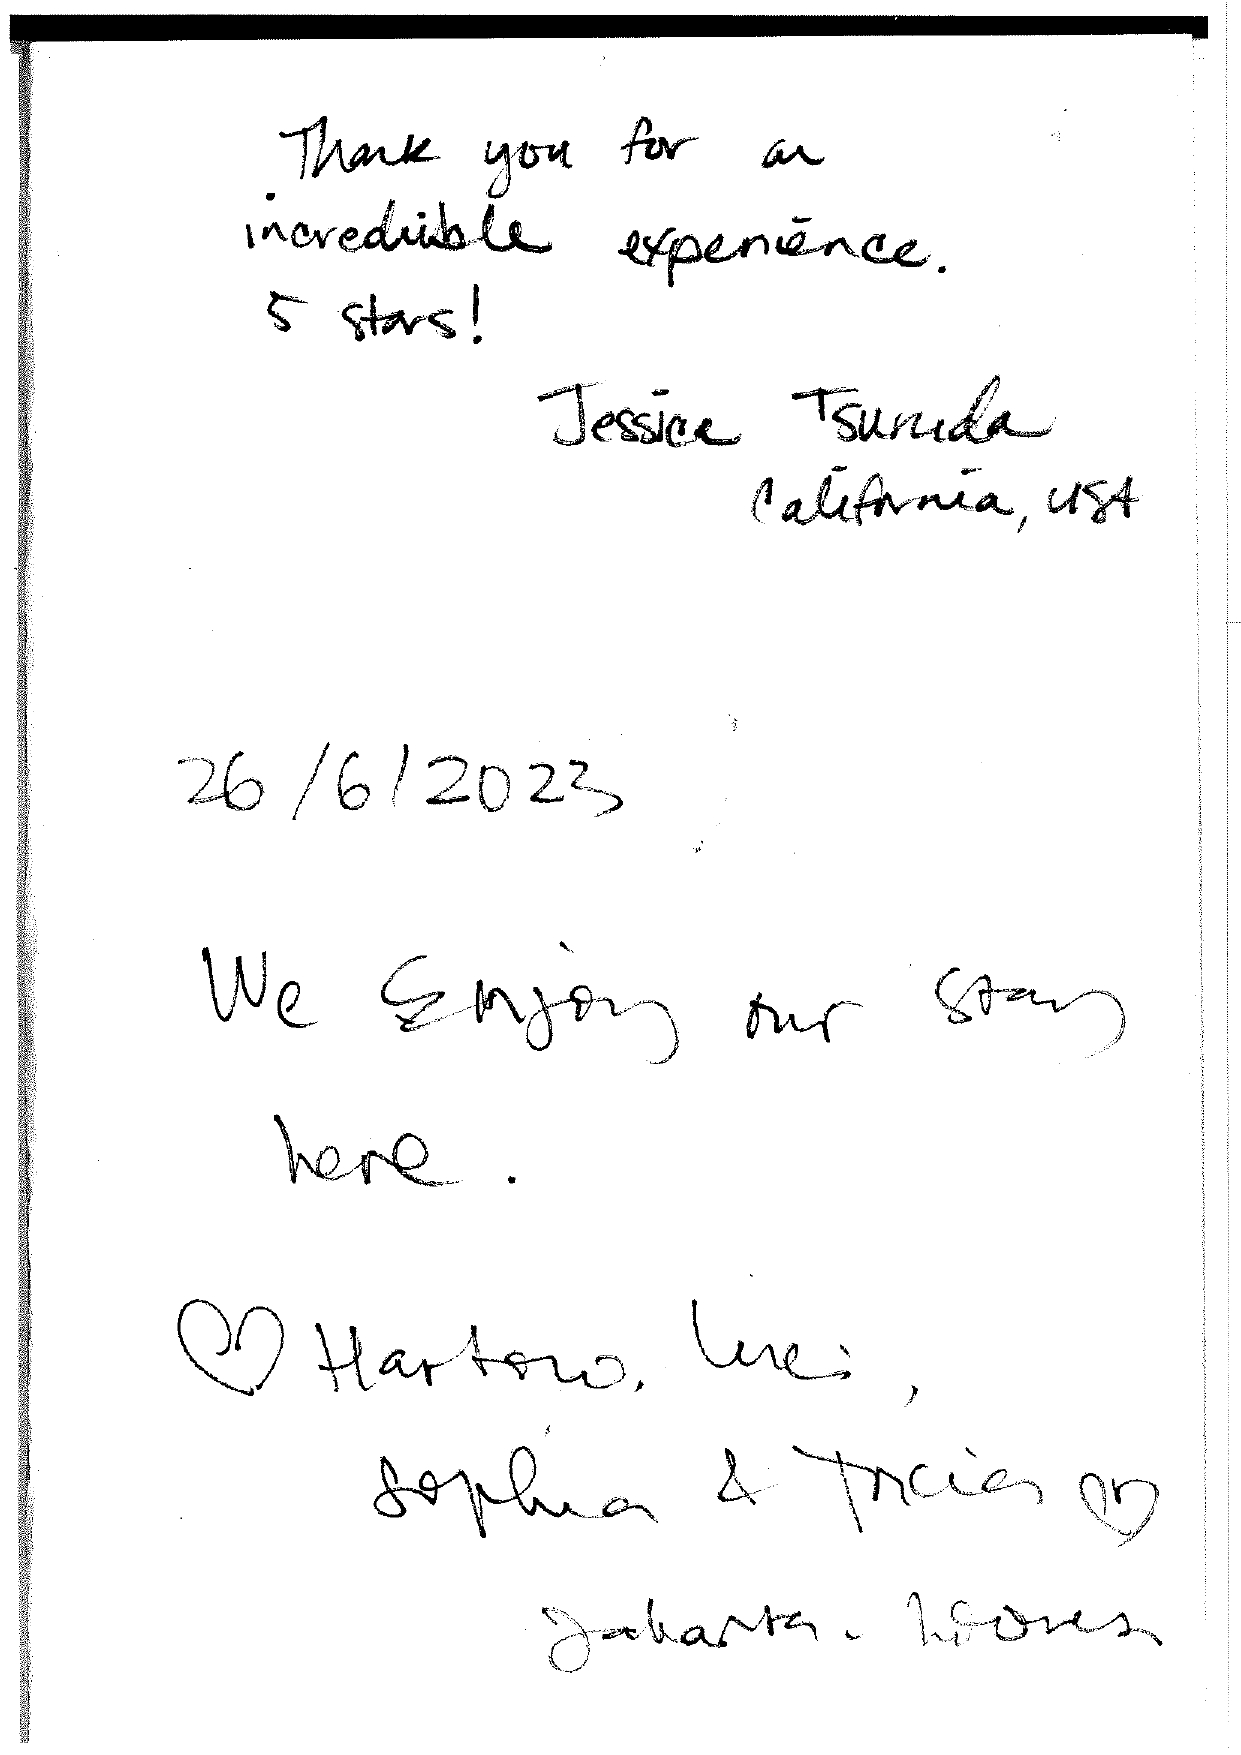 Thank you for an
incredible experience.
5 stars!
Jessica Tsuruda
California, USA
26/6/2023
We Enjoy our stay
here.
♡ Hartono,
Sophia & Tricia ♡
Jakarta - Indonesia